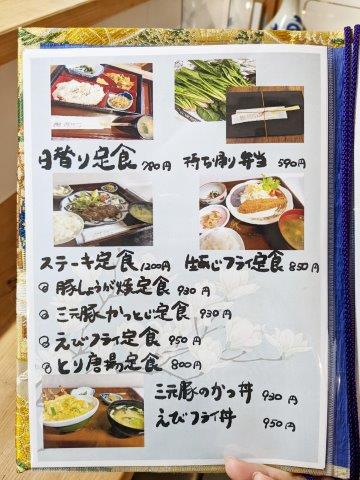 日替り定食 780円
折り彫り弁当 590円
ステーキ定食 1200円
生あじフライ定食 850円
豚しょうが焼定食 930円
三元豚かつとじ定食 930円
えびフライ定食 950円
とり唐揚定食 800円
三元豚のかつ丼 930円
えびフライ丼 950円